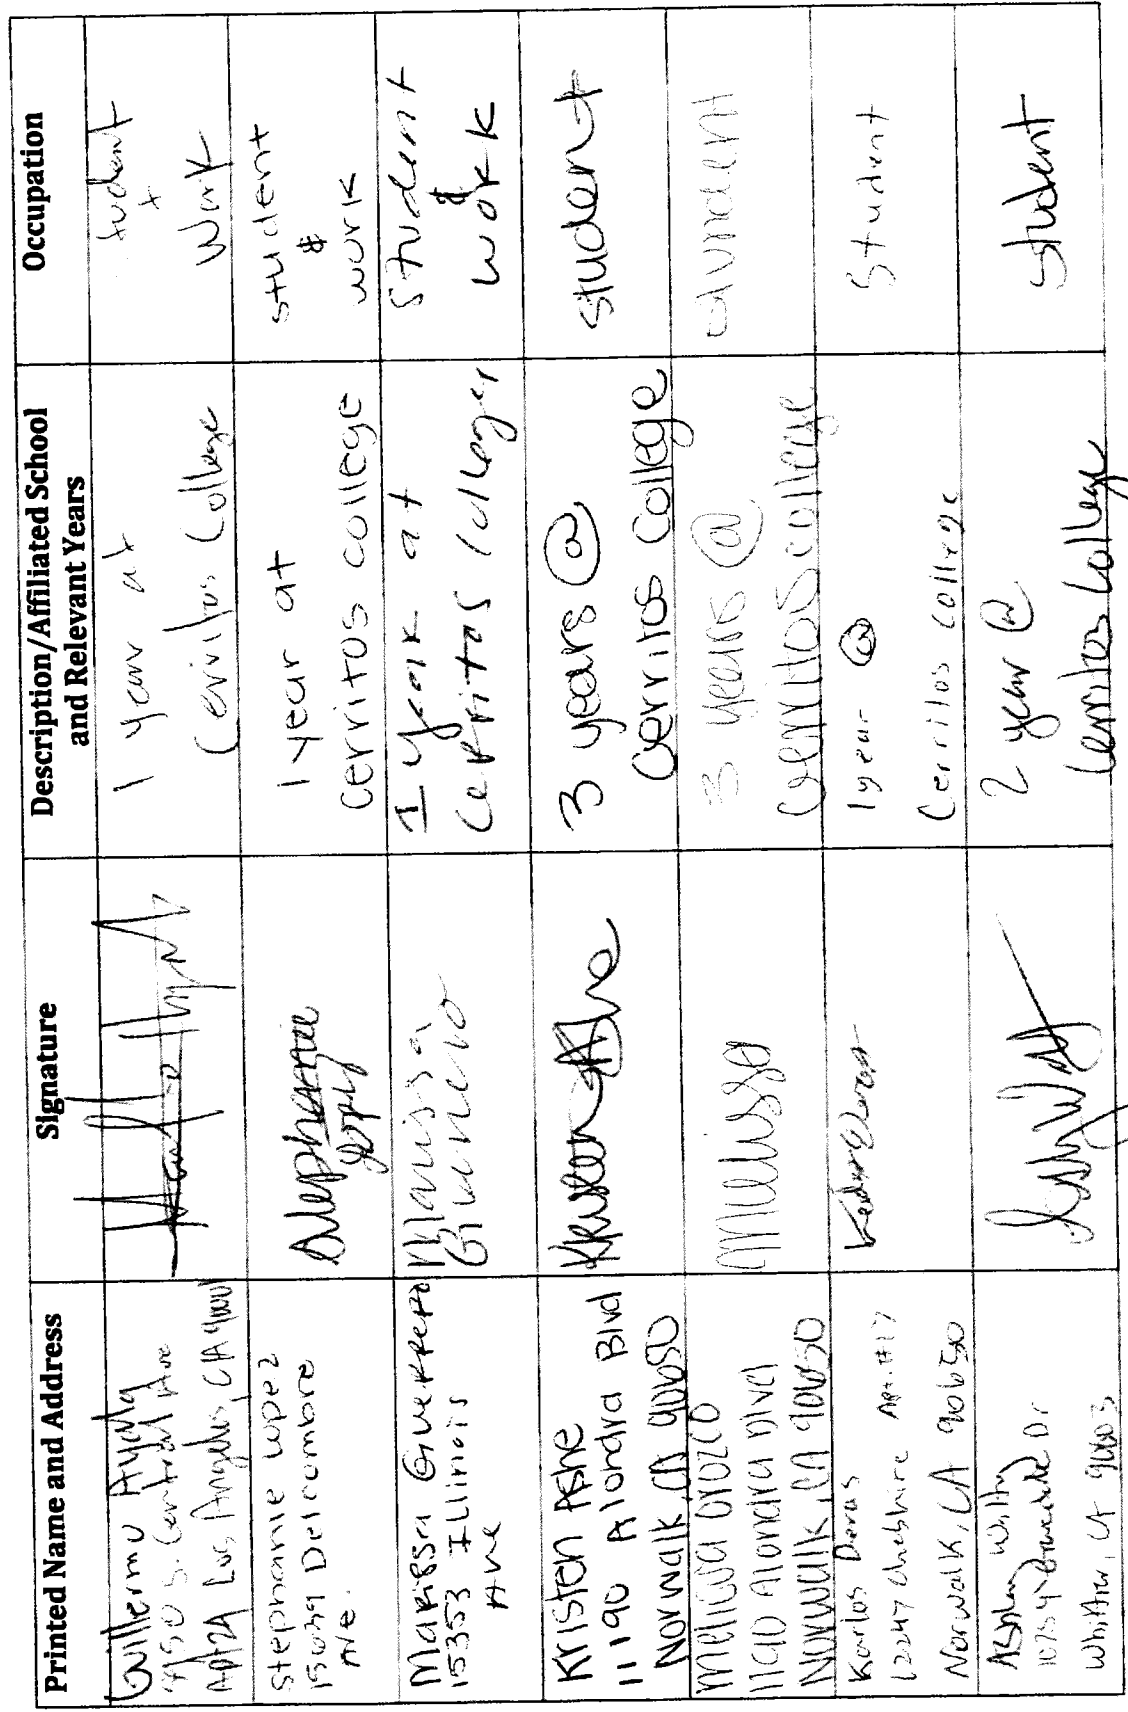 Printed Name and Address
Signature
Description/Affiliated School
and Relevant Years
Occupation
Guillermo Ayala
S. Central Ave
Apt 29 Los Angeles, CA
1 year at
Cerritos College
student
+
Work
Stephanie Lopez
Delcombre
Ave.
Stephanie
Lopez
1 year at
cerritos college
student
&
work
Marissa Guerrero
15353 Illinois
Ave
Marissa
1 year at
Cerritos College
Student
&
work
Kristen Ashe
11190 Alondra Blvd
Norwalk, CA 90650
Kristen Ashe
3 years @
Cerritos College
student
Melissa Orozco
11190 Alondra Blvd
Norwalk, CA 90650
Melissa
3 years @
Cerritos College
student
Karlos
12247 Cheshire Apt. #17
Norwalk, CA 90650
1 year @
Cerritos college
Student
Ashley
Dr
Whittier, CA 90603
2 year @
Cerritos College
student